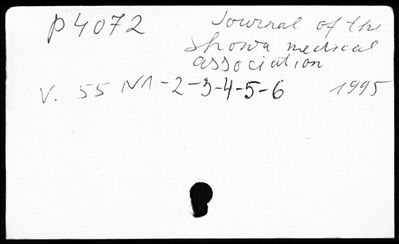 P4072 Journal of the
Showa medical
association
V. 55 N1-2-3-4-5-6 1995